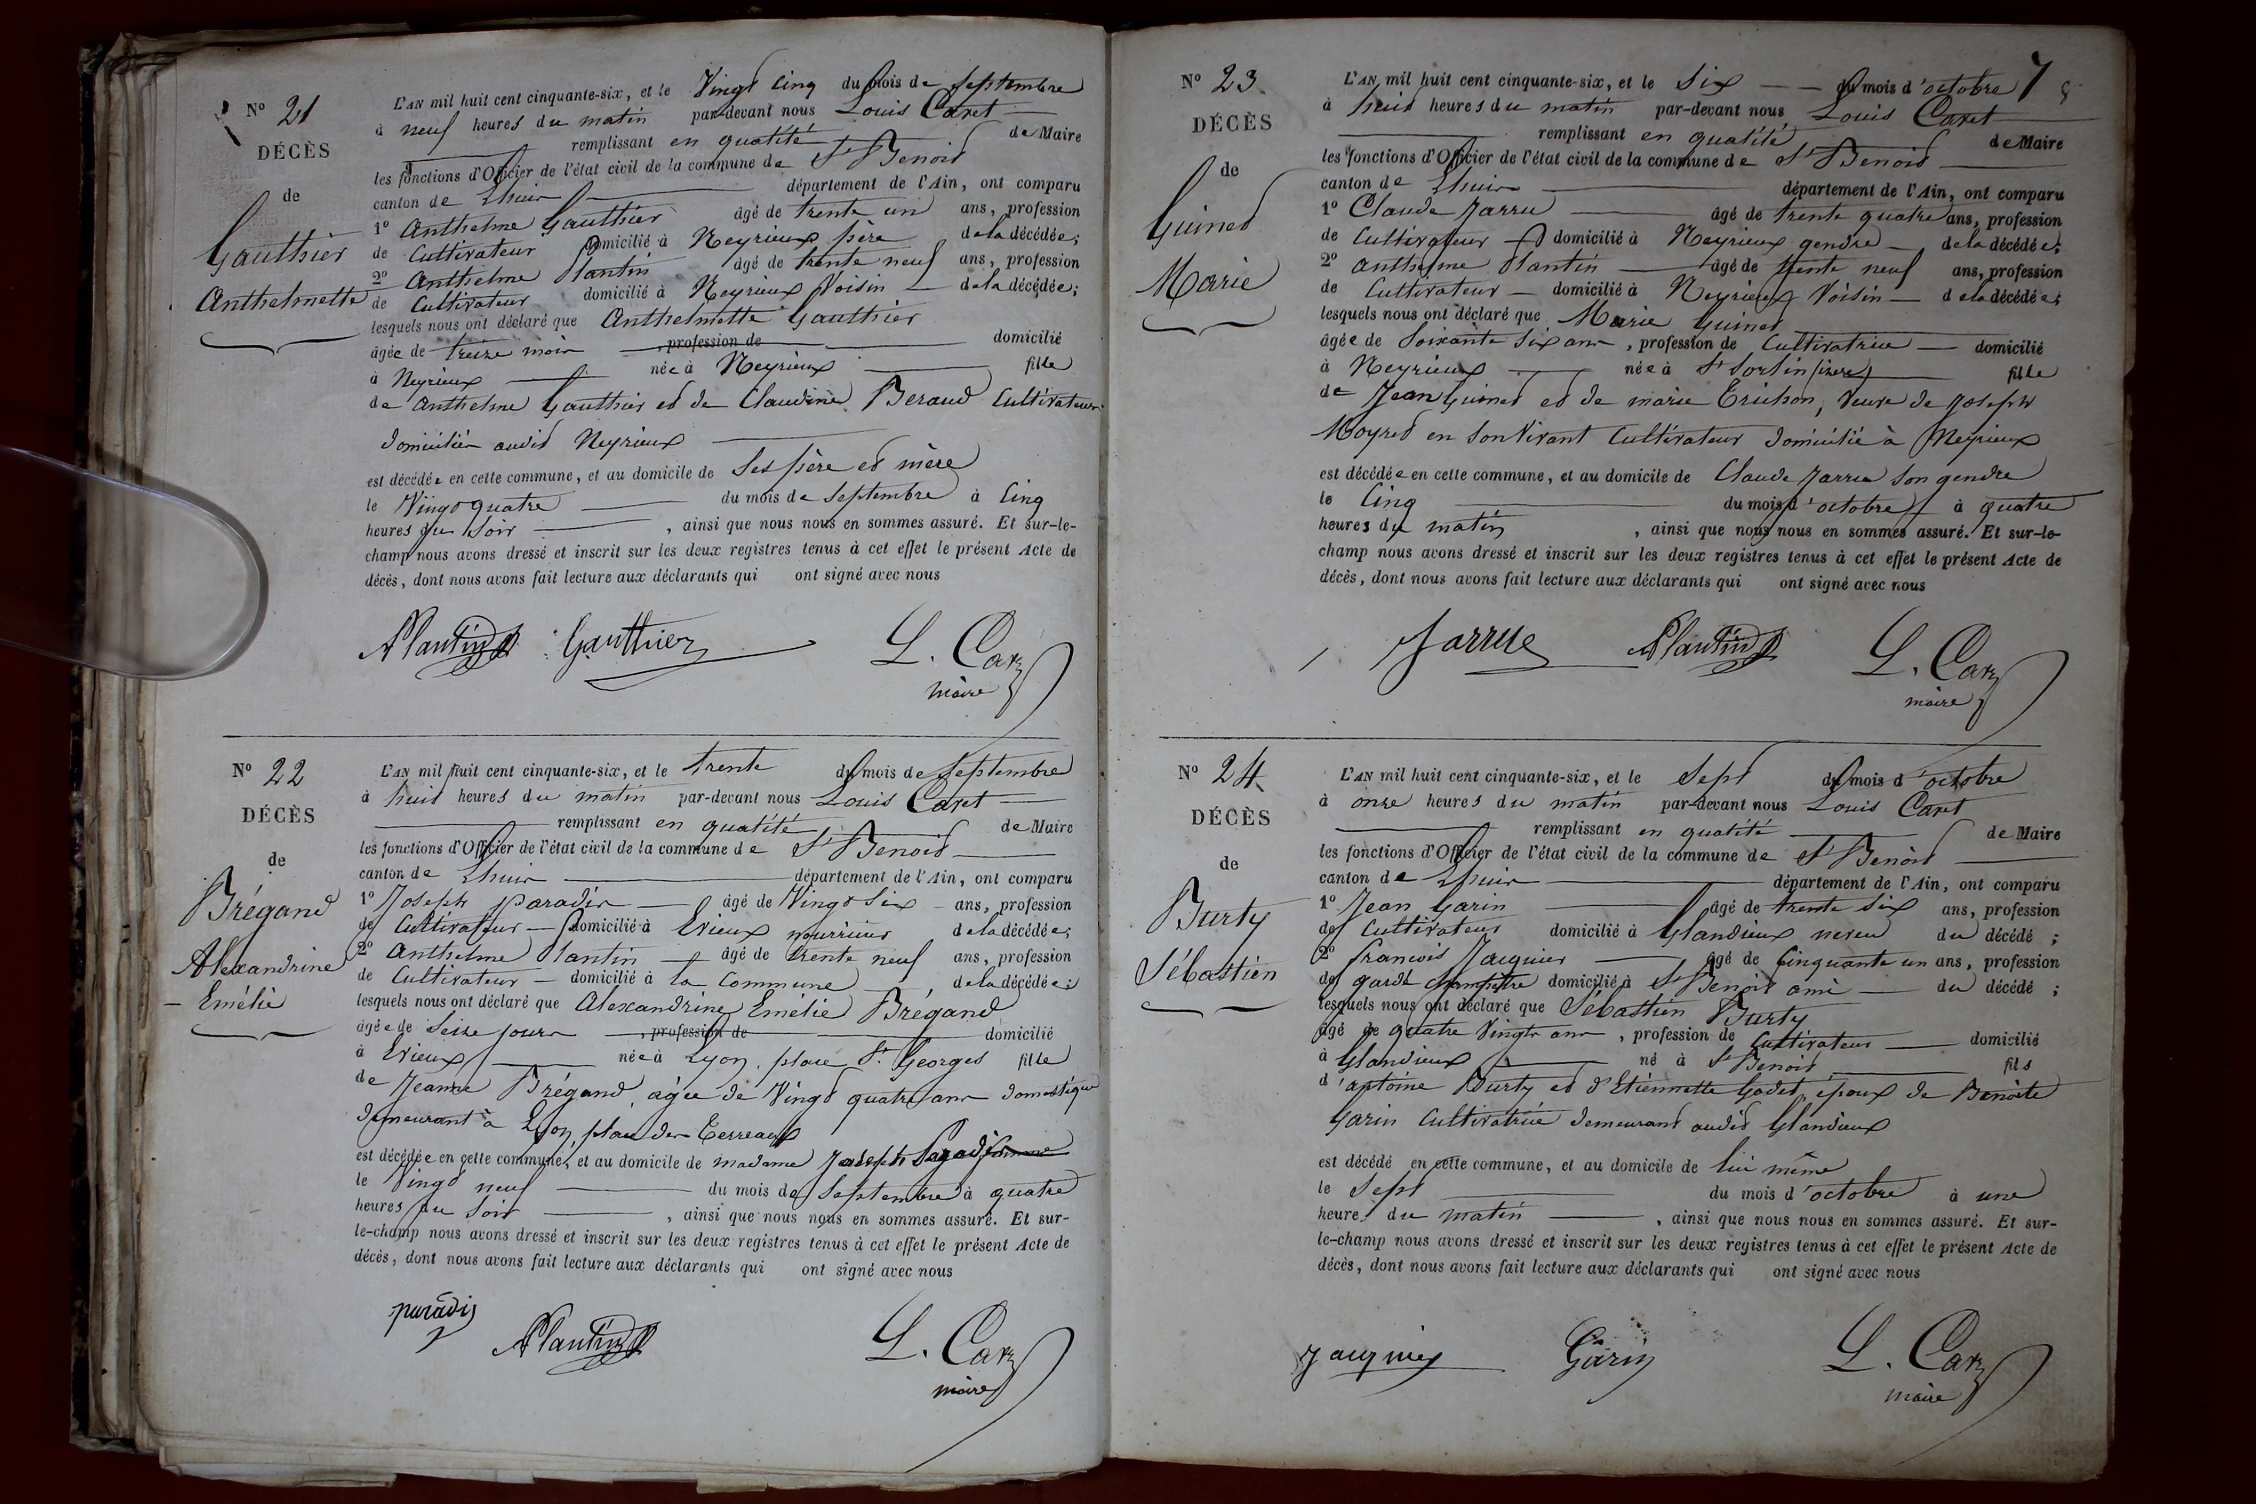 N° 21
DÉCÈS
de
Gauthier
Anthelmette
L'AN mil huit cent cinquante-six, et le Vingt cinq du mois de Septembre
à neuf heures du matin par-devant nous Louis Caret
remplissant en qualité de Maire
les fonctions d'Officier de l'état civil de la commune de St Benoit
canton de Lhuis département de l'Ain, ont comparu
1° Anthelme Gauthier âgé de trente un ans, profession
de Cultivateur domicilié à Neyrieux père de la décédée;
2° Anthelme Plantin âgé de trente neuf ans, profession
de Cultivateur domicilié à Neyrieux Voisin de la décédée;
lesquels nous ont déclaré que Anthelmette Gauthier
âgée de treize mois , profession de domicilié
à Neyrieux née à Neyrieux fille
de Anthelme Gauthier et de Claudine Beraud Cultivateurs
domiciliés audit Neyrieux
est décédée en cette commune, et au domicile de Ses père et mère
le Vingt quatre du mois de Septembre à Cinq
heures du Soir , ainsi que nous nous en sommes assuré. Et sur-le-
champ nous avons dressé et inscrit sur les deux registres tenus à cet effet le présent Acte de
décès, dont nous avons fait lecture aux déclarants qui ont signé avec nous
APlantin Gauthier L. Caret
maire
N° 22
DÉCÈS
de
Brégand
Alexandrine
Emélie
L'AN mil huit cent cinquante-six, et le trente du mois de Septembre
à huit heures du matin par-devant nous Louis Caret
remplissant en qualité de Maire
les fonctions d'Officier de l'état civil de la commune de St Benoit
canton de Lhuis département de l'Ain, ont comparu
1° Joseph paradis âgé de Vingt Six ans, profession
de Cultivateur domicilié à Evieux nourricier de la décédée;
2° Anthelme Plantin âgé de trente neuf ans, profession
de Cultivateur domicilié à la Commune , de la décédée;
lesquels nous ont déclaré que Alexandrine Emélie Brégand
âgée de Seize jours , profession de domicilié
à Evieux née à Lyon, place St Georges fille
de Jeanne Brégand, agée de Vingt quatre ans domestique
demeurant à Lyon, place des Terreaux
est décédée en cette commune, et au domicile de madame Joseph Paradis
le Vingt neuf du mois de Septembre à quatre
heures du Soir , ainsi que nous nous en sommes assuré. Et sur-
le-champ nous avons dressé et inscrit sur les deux registres tenus à cet effet le présent Acte de
décès, dont nous avons fait lecture aux déclarants qui ont signé avec nous
paradis APlantin L. Caret
maire
7
N° 23
DÉCÈS
de
Guinet
Marie
L'AN mil huit cent cinquante-six, et le Six du mois d'octobre
à huit heures du matin par-devant nous Louis Caret
remplissant en qualité de Maire
les fonctions d'Officier de l'état civil de la commune de St Benoit
canton de Lhuis département de l'Ain, ont comparu
1° Claude Jarru âgé de trente quatre ans, profession
de Cultivateur domicilié à Neyrieux gendre de la décédée;
2° anthelme Plantin âgé de trente neuf ans, profession
de Cultivateur domicilié à Neyrieux Voisin de la décédée;
lesquels nous ont déclaré que Marie Guinet
âgée de Soixante Six ans , profession de Cultivatrice domicilié
à Neyrieux née à St Sorlin (isere) fille
de Jean Guinet et de marie Erichon, Veuve de Joseph
Moyret en Son Vivant Cultivateur domicilié à Neyrieux
est décédée en cette commune, et au domicile de Claude Jarru Son gendre
le Cinq du mois d'octobre à quatre
heures du matin , ainsi que nous nous en sommes assuré. Et sur-le-
champ nous avons dressé et inscrit sur les deux registres tenus à cet effet le présent Acte de
décès, dont nous avons fait lecture aux déclarants qui ont signé avec nous
Jarrue APlantin L. Caret
maire
N° 24
DÉCÈS
de
Burty
Sébastien
L'AN mil huit cent cinquante-six, et le Sept du mois d'octobre
à onze heures du matin par-devant nous Louis Caret
remplissant en qualité de Maire
les fonctions d'Officier de l'état civil de la commune de St Benoit
canton de Lhuis département de l'Ain, ont comparu
1° Jean Garin âgé de trente Six ans, profession
de Cultivateur domicilié à Glandieux neveu du décédé ;
2° francois Jacquier âgé de Cinquante un ans, profession
de garde champêtre domicilié à St Benoit ami du décédé ;
lesquels nous ont déclaré que Sébastien Burty
âgé de quatre Vingts ans , profession de Cultivateur domicilié
à Glandieux né à St Benoit fils
d'antoine Burty et d'Etiennette Godet, époux de Benoite
Garin Cultivatrice demeurant audit Glandieux
est décédé en cette commune, et au domicile de lui même
le Sept du mois d'octobre à une
heure du matin , ainsi que nous nous en sommes assuré. Et sur-
le-champ nous avons dressé et inscrit sur les deux registres tenus à cet effet le présent Acte de
décès, dont nous avons fait lecture aux déclarants qui ont signé avec nous
Jacquier Garin L. Caret
maire